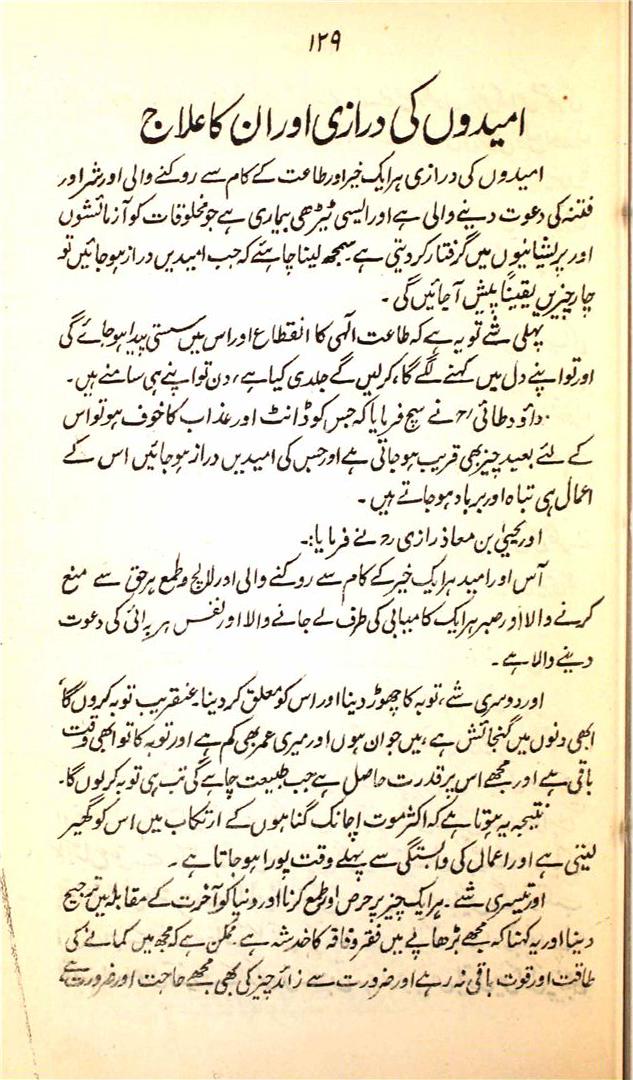 ۱۲۹
امیدوں کی درازی اور ان کا علاج
امیدوں کی درازی ہر ایک خیر اور طاعت کے کام سے روکنے والی اور شر اور
فتنہ کی دعوت دینے والی ہے اور ایسی ٹیڑھی بیماری ہے جو مخلوقات کو آزمائشوں
اور پریشانیوں میں گرفتار کر دیتی ہے۔ سمجھ لینا چاہئے کہ جب امیدیں دراز ہو جائیں تو
چار چیزیں یقیناً پیش آجائیں گی۔
پہلی شے تو یہ ہے کہ طاعت الٰہی کا انقطاع اور اس میں سستی پیدا ہو جائے گی
اور تو اپنے دل میں کہنے لگے گا، کر لیں گے جلدی کیا ہے، دن تو اپنے ہی سامنے ہیں۔
داؤد طائی رح نے سچ فرمایا کہ جس کو ڈانٹ اور عذاب کا خوف ہو تو اس
کے لئے بعید چیز بھی قریب ہو جاتی ہے اور جس کی امیدیں دراز ہو جائیں اس کے
اعمال ہی تباہ اور برباد ہو جاتے ہیں۔
اور یحییٰ بن معاذ رازی رح نے فرمایا:۔
آس اور امید ہر ایک خیر کے کام سے روکنے والی اور لالچ و طمع ہر حق سے منع
کرنے والا اور صبر ہر ایک کامیابی کی طرف لے جانے والا اور نفس ہر برائی کی دعوت
دینے والا ہے۔
اور دوسری شے، توبہ کا چھوڑ دینا اور اس کو معلق کر دینا۔ عنقریب توبہ کروں گا،
ابھی دنوں میں گنجائش ہے، میں جوان ہوں اور میری عمر بھی کم ہے اور توبہ کا تو ابھی وقت
باقی ہے اور مجھے اس پر قدرت حاصل ہے جب طبیعت چاہے گی تب ہی توبہ کر لوں گا۔
نتیجہ یہ ہوتا ہے کہ اکثر موت اچانک گناہوں کے ارتکاب میں اس کو گھیر
لیتی ہے اور اعمال کی وابستگی سے پہلے وقت پورا ہو جاتا ہے۔
اور تیسری شے۔ ہر ایک چیز پر حرص اور طمع کرنا اور دنیا کو آخرت کے مقابلہ میں ترجیح
دینا اور یہ کہنا کہ مجھے بڑھاپے میں فقر و فاقہ کا خدشہ ہے۔ ممکن ہے کہ مجھ میں کمانے کی
طاقت اور قوت باقی نہ رہے اور ضرورت سے زائد چیز کی بھی مجھے حاجت اور ضرورت ہے